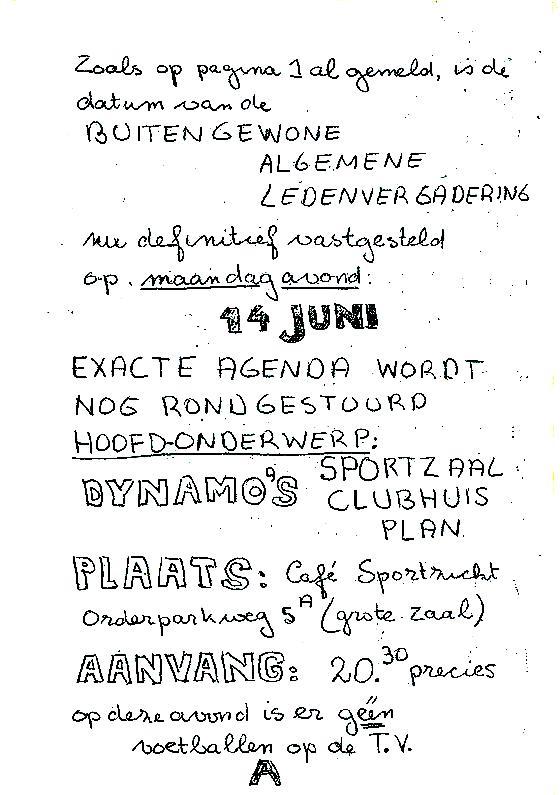 Zoals op pagina 1 al gemeld, is de
datum van de
BUITENGEWONE
ALGEMENE
LEDENVERGADERING
nu definitief vastgesteld
op. maandagavond:
14 JUNI
EXACTE AGENDA WORDT
NOG RONDGESTOURD
HOOFD-ONDERWERP:
DYNAMO'S SPORTZAAL
CLUBHUIS
PLAN
PLAATS: Café Sportzicht
Orderparkweg 5A (grote zaal)
AANVANG: 20.30 precies
op deze avond is er géén
voetballen op de T.V.
A